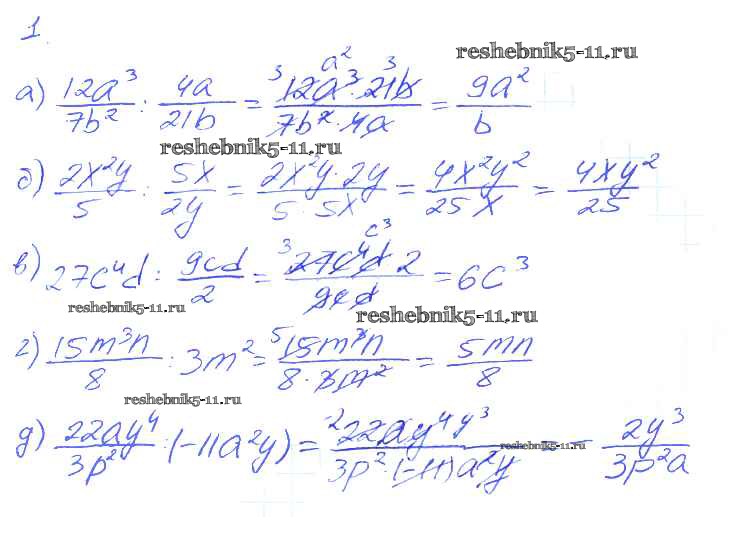 1.
reshebnik5-11.ru
а) 12a³/7b² : 4a/21b = 12a³·21b/7b²·4a = 9a²/b
reshebnik5-11.ru
б) 2x²y/5 : 5x/2y = 2x²y·2y/5·5x = 4x²y²/25x = 4xy²/25
в) 27c⁴d : 9cd/2 = 27c⁴d 2/9cd = 6c³
reshebnik5-11.ru reshebnik5-11.ru
г) 15m³n/8 : 3m² = 15m³n/8·3m² = 5mn/8
reshebnik5-11.ru
д) 22ay⁴/3p² : (-11a²y) = 22ay⁴/3p²·(-11)a²y = - 2y³/3p²a
reshebnik5-11.ru